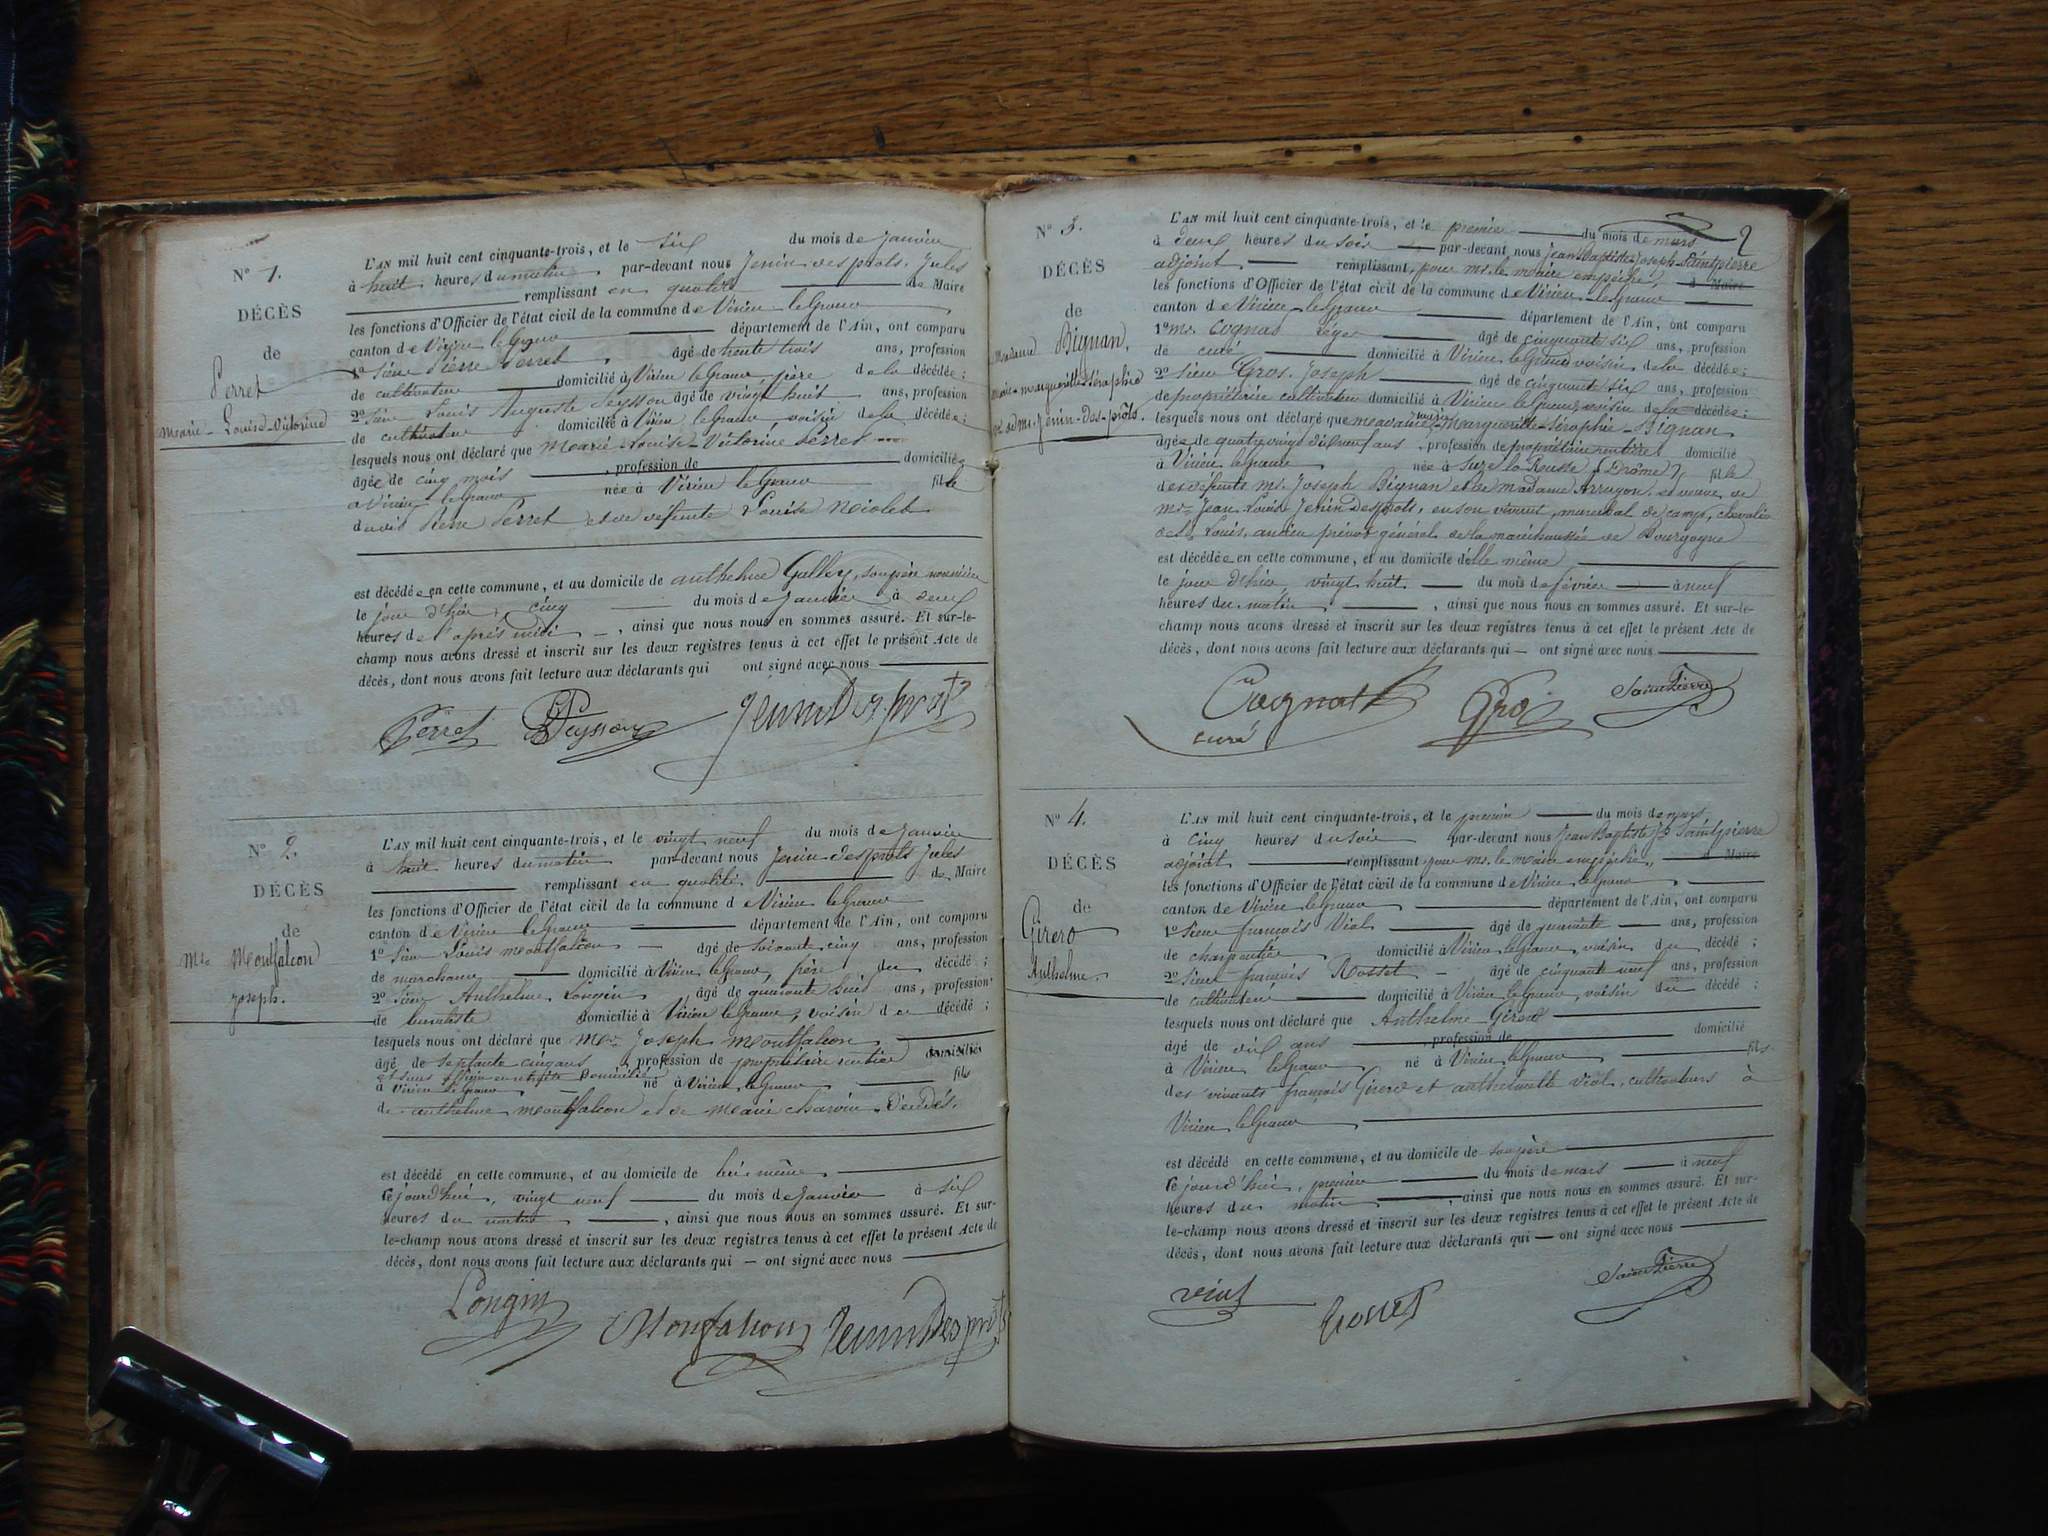 N° 1.
DÉCÈS
de
Perret
Marie-Louise-Victorine
L'AN mil huit cent cinquante-trois, et le six du mois de Janvier
à huit heures du matin par-devant nous Jenin desprots, Jules
remplissant en qualité de Maire
les fonctions d'Officier de l'état civil de la commune de Virieu le Grand
canton de Virieu le Grand département de l'Ain, ont comparu
1° Sieur Pierre Perret, âgé de trente trois ans, profession
de cultivateur domicilié à Virieu le Grand, père de la décédée;
2° Sieur Louis Auguste Peysson âgé de vingt huit ans, profession
de cultivateur domicilié à Virieu le Grand voisin de la décédée;
lesquels nous ont déclaré que Marie-Louise-Victorine Perret
âgée de cinq mois, profession de domiciliée
à Virieu le Grand née à Virieu le Grand fille
Perret et de défunte Louise
est décédée en cette commune, et au domicile de anthelme Gallay, son père nourricier
le jour d'hier, cinq du mois de Janvier à deux
heures de l'après midi, ainsi que nous nous en sommes assuré. Et sur-le-
champ nous avons dressé et inscrit sur les deux registres tenus à cet effet le présent Acte de
décès, dont nous avons fait lecture aux déclarants qui ont signé avec nous
Perret Peysson Jenin Desprots
N° 2.
DÉCÈS
de
Mr. Montfalcon
Joseph.
L'AN mil huit cent cinquante-trois, et le vingt neuf du mois de Janvier
à huit heures du matin par-devant nous Jenin desprots Jules
remplissant en qualité de Maire
les fonctions d'Officier de l'état civil de la commune de Virieu le Grand
canton de Virieu le Grand département de l'Ain, ont comparu
1° Sieur Louis Montfalcon âgé de soixante cinq ans, profession
de marchand domicilié à Virieu le Grand, frère du décédé;
2° Sieur Anthelme Longin, âgé de quarante huit ans, profession
de domicilié à Virieu le Grand, voisin du décédé;
lesquels nous ont déclaré que Mr. Joseph Montfalcon
âgé de septante cinq ans, profession de propriétaire rentier
en retraite domicilié
à Virieu le Grand né à Virieu le Grand fils
de anthelme Montfalcon et de Marie charvin, Décédés.
est décédé en cette commune, et au domicile de lui-même
ce jourd'hui, vingt neuf du mois de Janvier à six
heures du matin, ainsi que nous nous en sommes assuré. Et sur-
le-champ nous avons dressé et inscrit sur les deux registres tenus à cet effet le présent Acte de
décès, dont nous avons fait lecture aux déclarants qui — ont signé avec nous
Longin Montfalcon Jenin Desprots
2
N° 3.
DÉCÈS
de
Madame Bignan,
Marie-Marguerite Séraphie
ve. de Mr. Jenin-Des-prots.
L'AN mil huit cent cinquante-trois, et le premier du mois de mars
à deux heures du soir par-devant nous Jean Baptiste Joseph Saintpierre
adjoint remplissant, pour Mr. le maire empêché, de Maire
les fonctions d'Officier de l'état civil de la commune de Virieu-le-Grand
canton de Virieu le Grand département de l'Ain, ont comparu
1° Mr. Cognat Léger âgé de cinquante six ans, profession
de curé domicilié à Virieu le Grand voisin de la décédée;
2° Sieur Gros, Joseph âgé de cinquante six ans, profession
de propriétaire cultivateur domicilié à Virieu le Grand, voisin de la décédée;
lesquels nous ont déclaré que madame Marie Marguerite-Séraphie-Bignan
âgée de quatre vingt dix neuf ans, profession de propriétaire rentière domicilié
à Virieu le Grand née à Suze la Rousse (Drôme) fille
des défunts Mr. Joseph Bignan et de madame Arragon, et veuve de
Mr. Jean Louis Jenin Desprots, en son vivant, maréchal de camp, chevalier
de St. Louis, ancien prévot général de la maréchaussée de Bourgogne
est décédée en cette commune, et au domicile d'elle même
le jour d'hier, vingt huit du mois de février à neuf
heures du matin, ainsi que nous nous en sommes assuré. Et sur-le-
champ nous avons dressé et inscrit sur les deux registres tenus à cet effet le présent Acte de
décès, dont nous avons fait lecture aux déclarants qui — ont signé avec nous
Cognat Gros Saint Pierre
curé
N° 4.
DÉCÈS
de
Girerd
Anthelme.
L'AN mil huit cent cinquante-trois, et le premier du mois de mars,
à cinq heures du soir par-devant nous Jean Baptiste Jh. Saintpierre
adjoint remplissant pour Mr. le Maire empêché, de Maire
les fonctions d'Officier de l'état civil de la commune de Virieu le Grand
canton de Virieu le Grand département de l'Ain, ont comparu
1° Sieur françois Vial âgé de quarante ans, profession
de charpentier domicilié à Virieu le Grand, voisin du décédé;
2° Sieur françois Rosset âgé de cinquante neuf ans, profession
de cultivateur domicilié à Virieu le Grand, voisin du décédé;
lesquels nous ont déclaré que Anthelme Girerd
âgé de dix ans, profession de domicilié
à Virieu le Grand né à Virieu le Grand fils
des vivants françois Girerd et anthelmette Vial, cultivateurs à
Virieu le Grand
est décédé en cette commune, et au domicile de son père
ce jourd'hui, premier du mois de mars à neuf
heures du matin, ainsi que nous nous en sommes assuré. Et sur-
le-champ nous avons dressé et inscrit sur les deux registres tenus à cet effet le présent Acte de
décès, dont nous avons fait lecture aux déclarants qui — ont signé avec nous
vial Rosset Saint Pierre